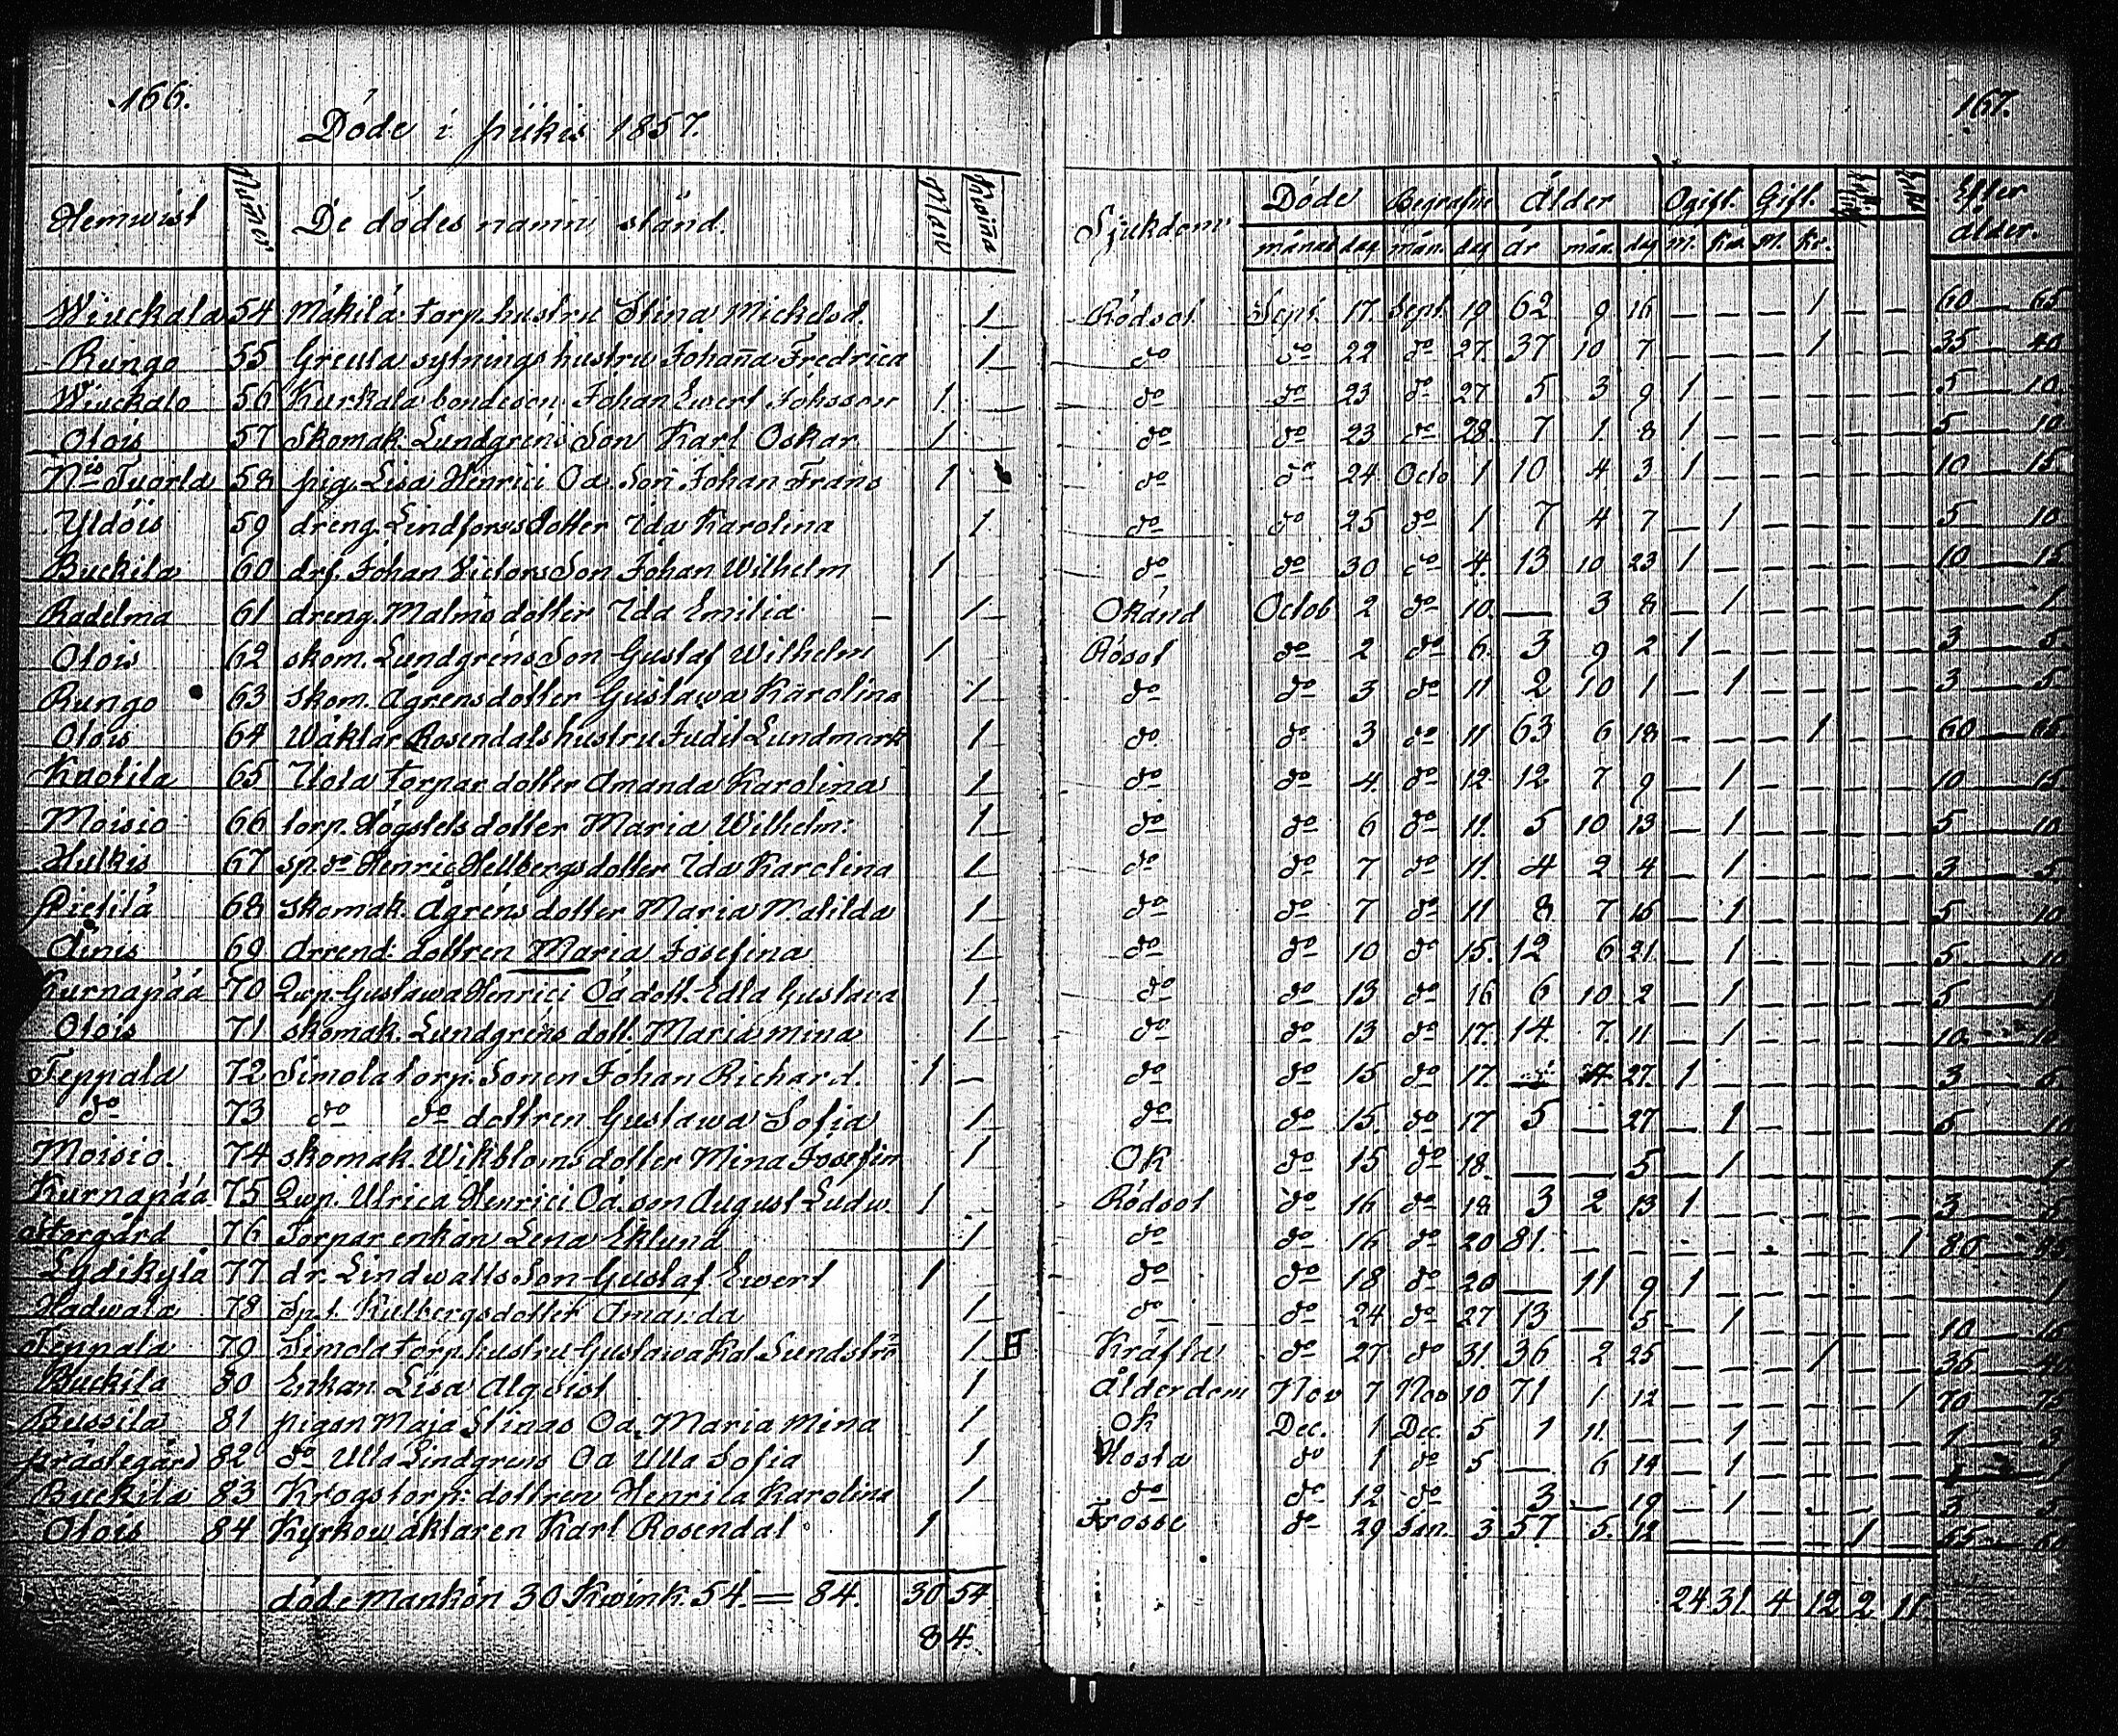 166.
Döde i piikis 1857.
Hemwist Nummer De dödes namn stånd. Man Kwiña
Wiuckala 54 Mäkilä torp.hustru Stina Mickelsd. 1
Rungo 55 Greula sytnings hustru Johaña Fredrica 1
Wiuckala 56 Kurkala bondeson Johan Ewert Johsson 1
Olois 57 Skomak. Lundgréns Son Karl Oskar 1
Nis Tuorla 58 pig. Lisa Henrici Oä. Son Johan Frans 1
Yldöis 59 dreng. Lindforss dotter Ida Karolina 1
Buckila 60 drf. Johan Victors Son Johan Wilhelm 1
Radelma 61 dreng. Malms dotter Ida Emilia 1
Olois 62 skom. Lundgréns Son Gustaf Wilhelm 1
Rungo 63 skom. Ågrens dotter Gustawa Karolina 1
Olois 64 Wäktar Rosendals hustru Judit Lundmark 1
Knolila 65 Torpar dotter Amanda Karolina 1
Moisio 66 torp. Högstets dotter Maria Wilhelm: 1
Hulkis 67 sp. do Henric Hellbergs dotter Ida Karolina 1
Pietilä 68 skomak. Ågréns dotter Maria Matilda 1
69 arrend: dottren Maria Josefina 1
Kurnapää 70 Qwp. Gustawa Henrici Oä dott. Edla Gustava 1
Olois 71 skomak. Lundgréns dott. Maria Mina 1
Teppala 72 Simola torp. Sonen Johan Richard. 1
do 73 do do dottren Gustawa Sofia 1
Moisio. 74 skomak. Wikbloms dotter Mina Josefin 1
Kurnapää 75 Qwp. Ulrica Henrici Oä. son August Ludw. 1
Storgård 76 Torpar enkan Lena Eklund 1
Lydikylä 77 dr. Lindwalls Son Gustaf Ewert 1
Hadwala 78 Kulbergs dotter Amanda 1
Teppala 79 Simola torp.hustru Gustawa Kat Sundström 1
Buckila 80 Enkan Lisa Alqvist 1
Bussila 81 pigan Maja Stinas Oä. Maria Mina 1
prästegård 82 do Ulla Lindgrens Oä Ulla Sofia 1
Buckila 83 Krogs torp: dottren Henrica Karolina 1
Olois 84 Kyrkowäktaren Karl Rosendal 1
döde mankön 30 Kwink. 54. = 84. 30 54
84.
167.
Sjukdom Döde Begrafne Ålder Ogift. Gift. Efter ålder.
månad dag mån. dag år mån. dag M. Kw. M. Kv.
Rödsot Sept. 17. Sept. 19 62 9 16 — — — 1 — — 60 — 65
do do 22 do 27. 37 10 7 — — — 1 — — 35 — 40
do do 23 do 27 5 3 9 1 — — — — — 5 — 10
do do 23 do 28. 7 1. 8 1 — — — — — 5 — 10
do do 24 Octo 1 10 4 3 1 — — — — — 10 — 15
do do 25 do 1 7 4 7 — 1 — — — — 5 — 10
do do 30 do 4. 13 10 23 1 — — — — — 10 — 15
Okänd Octob 2 do 10. — 3 8 — 1 — — — — — 1
Rösot do 2 do 6. 3 9 2 1 — — — — — 3 — 5
do do 3 do 11 2 10 1 — 1 — — — — 3 — 5
do do 3 do 11 63 6 18 — — — 1 — — 60 — 65
do do 4. do 12 12 7 9 — 1 — — — — 10 — 15
do do 6 do 11. 5 10 13 — 1 — — — — 5 — 10
do do 7 do 11. 4 2 4 — 1 — — — — 3 — 5
do do 7 do 11 8 7 15 — 1 — — — — 5 — 10
do do 10 do 15. 12 6 21 — 1 — — — — 5 — 10
do do 13 do 16 6 10 2 — 1 — — — — 5
do do 13 do 17. 14. 7. 11 — 1 — — — — 10
do do 15 do 17. 27. 1 — — — — — 3 — 5
do do 15. do 17 5 — 27 — 1 — — — — 5 — 10
Ok do 15 do 18. — — 5 — 1 — — — — — 1
Rödsot do 16 do 18 3 2 13 1 — — — — — 3 — 5
do do 16 do 20 81. — — — — — — — 1 80 — 85
do do 18 do 20 — 11 9 1 — — — — — — 1
do do 24 do 27 13 — 5 — 1 — — — — 10 — 15
Kräfta do 27 do 31 36 2 25 — — — 1 — — 35 — 40
Ålderdom Nov 7 Nov 10 71 1 12 — — — — — 1 70 — 75
Ok Dec. 1 Dec. 5 1 11. — — 1 — — — — 1 — 3
Hosta do 1 do 5 — 6 14 — 1 — — — — 1
do do 12 do 3 — 19 — 1 — — — — 3 — 5
Frosse do 29 Jan. 3 57. 5 12 — — — — 1 — 55 — 60
24 31. 4 12 2 11